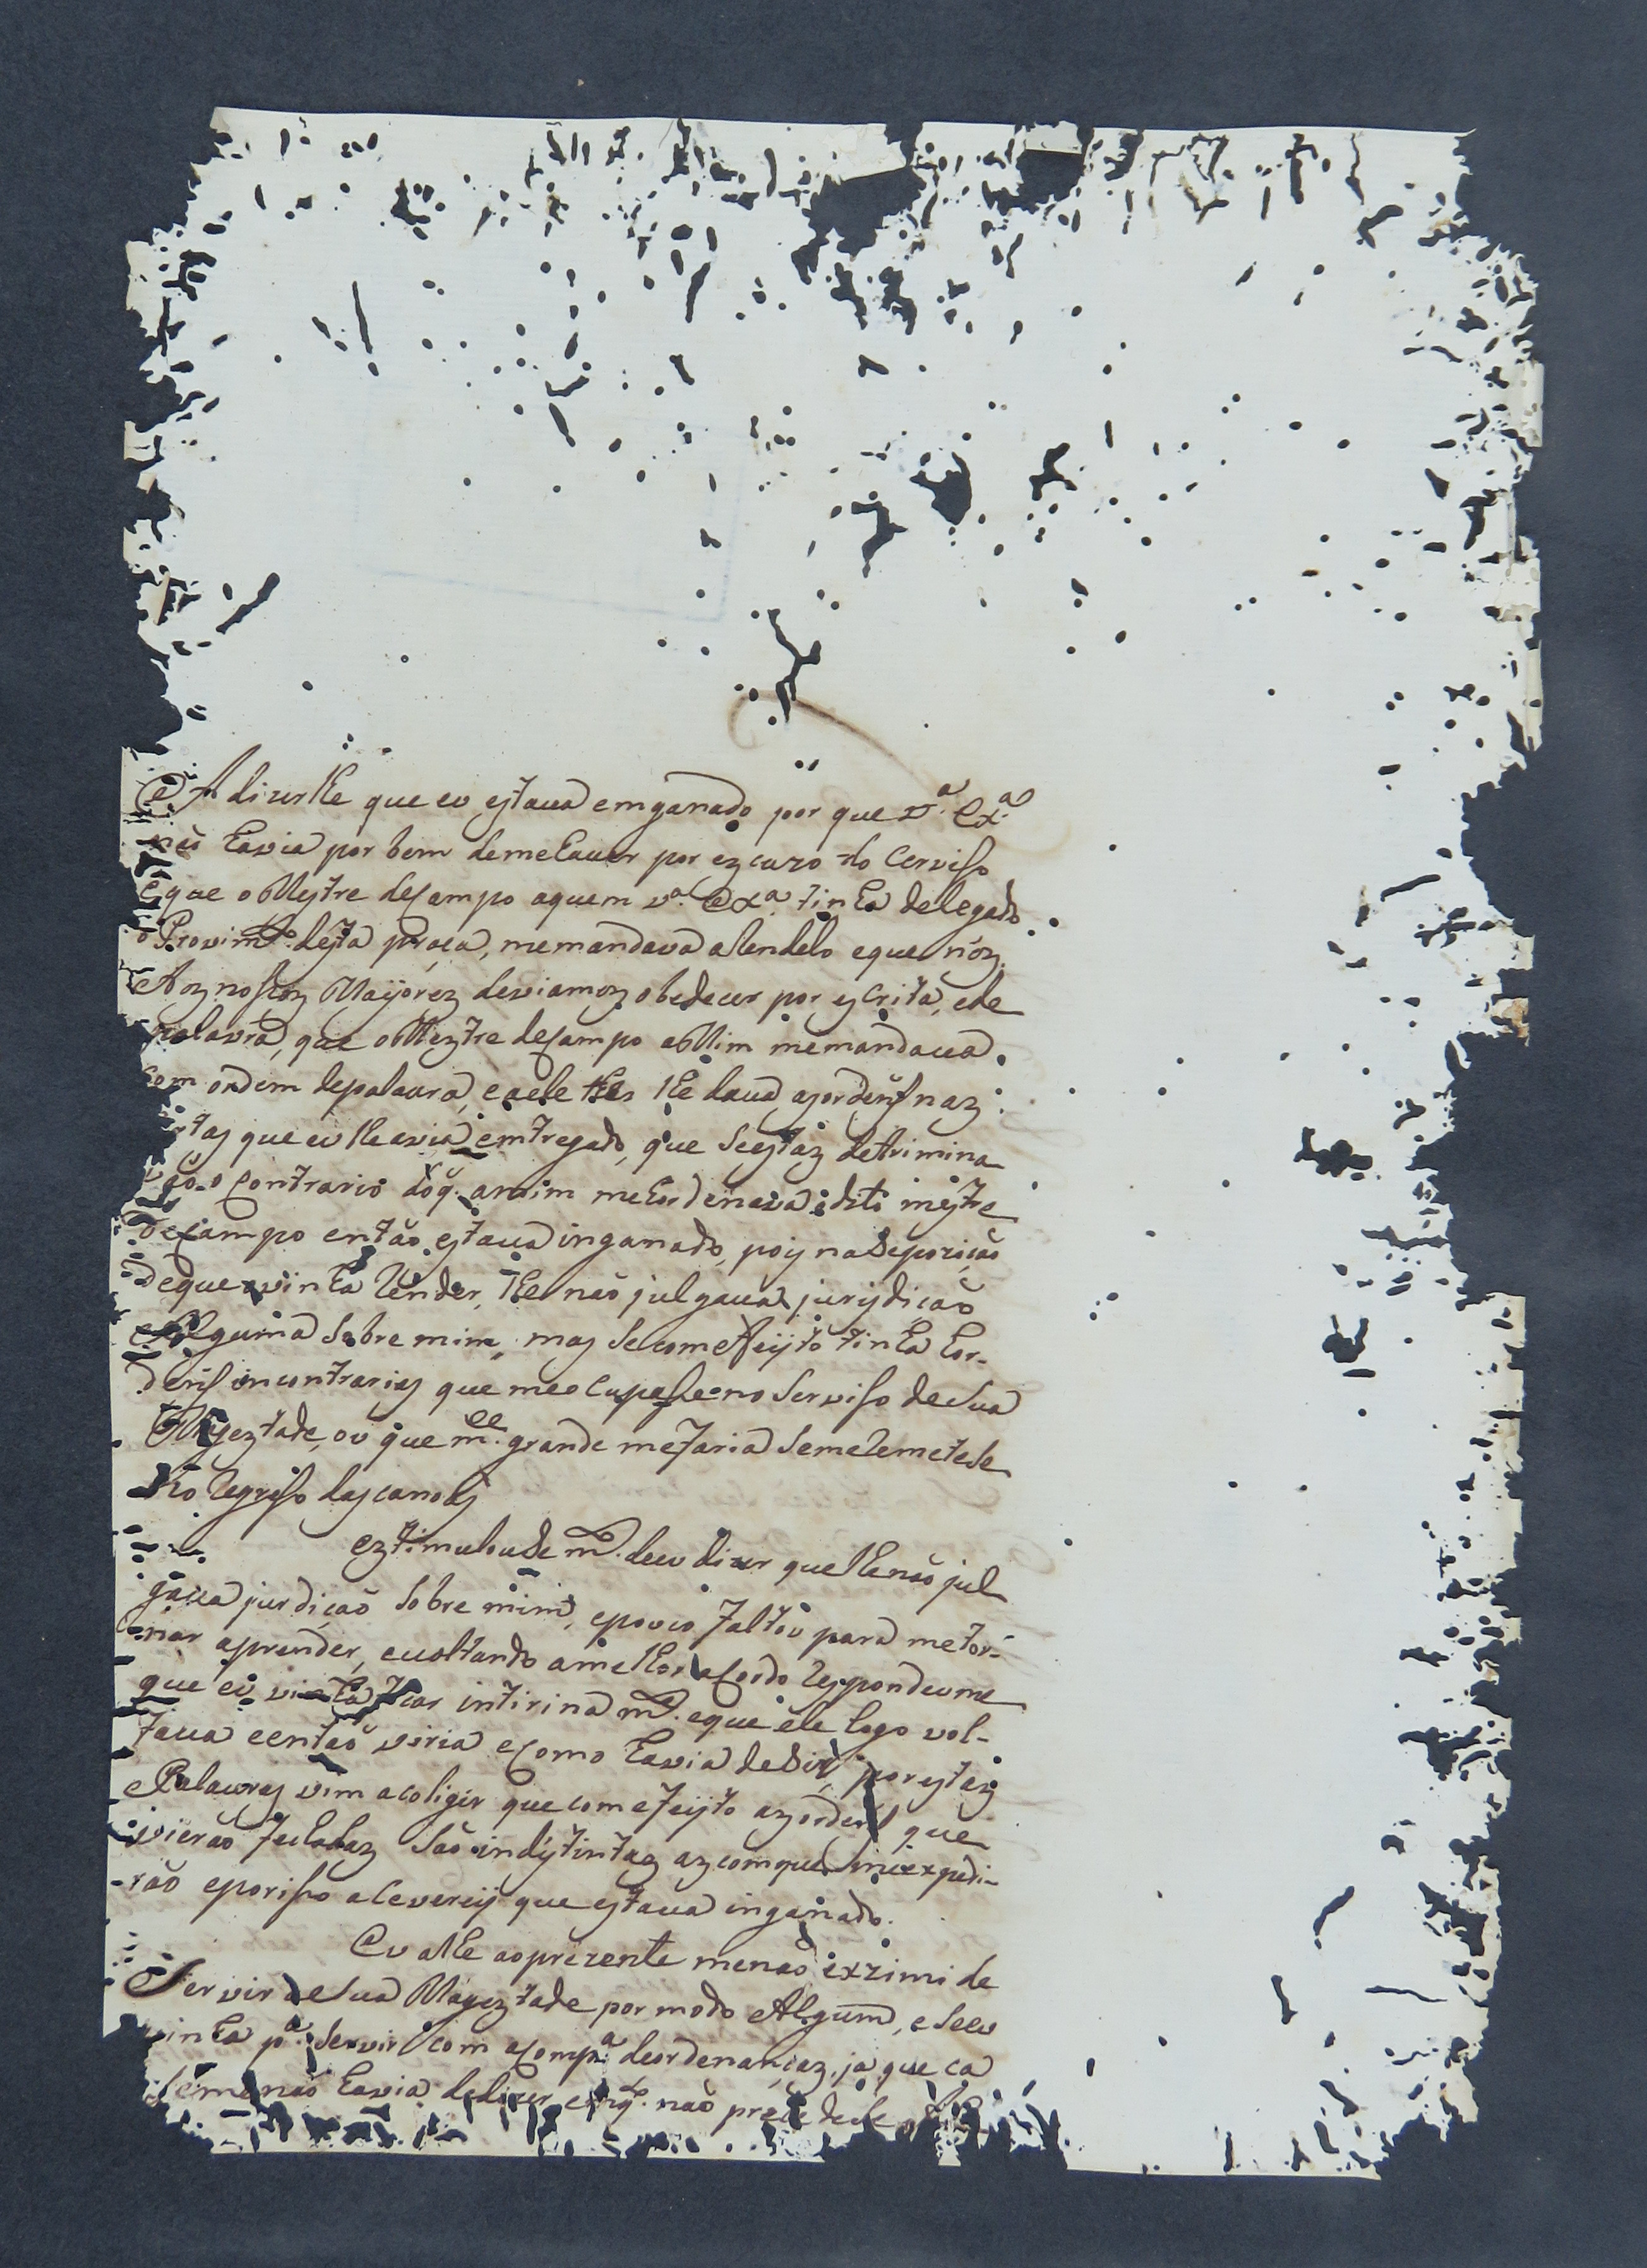 A dizerlhe que eu estaua emganado por que v.ª Ex.ª
não havia por bem demehauer por ezcuzo do Cerviso
Eque o Mestre deCampo aquem v.ª Exª. tinha delegado
o Provim.to desta praca, memandava atendelo eque nóz
Aoz nosoz Mayorez deviamoz obedecer por escrita, ede
palavra, que o Meztre deCampo a Mim memandaua
Com ordem depalaura, e aele lhe daua azordens naz
que eu lhe avia emtregado, que Seestaz detrimina
o Contrario doq. amim mehordenava o dito mestre
deCampo então estaua inganado, pois na depozição
deque vinha Render, lhe não julgaua jurisdicão
Alguma Sobre mim, mas Se com efeijto tinha hor-
dens incontrarias que meoCupase no Serviso deSua
Magestade, ou que m.ce grande mefaria Semeremetese
No Regreso das canoas
eztimulouse m.to deeu dizer que lhe não jul
gaua jurdição Sobre mim, epouco faltou para metor-
nar aprender, euoltando amelhor aCordo Respondeume
que eu vinha ficar intirina m.te eque ele logo vol-
taua eentão viria eComo havia deSir, por estas
Palauras vim acoligir que com efeijto az ordens que
vierão feichadaz São indistintaz az comque meexpedi-
rão eporiso aCeverey que estaua inganado.
Eu athe aoprezente menão exzimi de
Servir aSua Magestade por modo Algum, e Seeu
vinha p.ª Servir Com aComp.ª deordenançaz, ja que ca
Seme não havia dedizer não